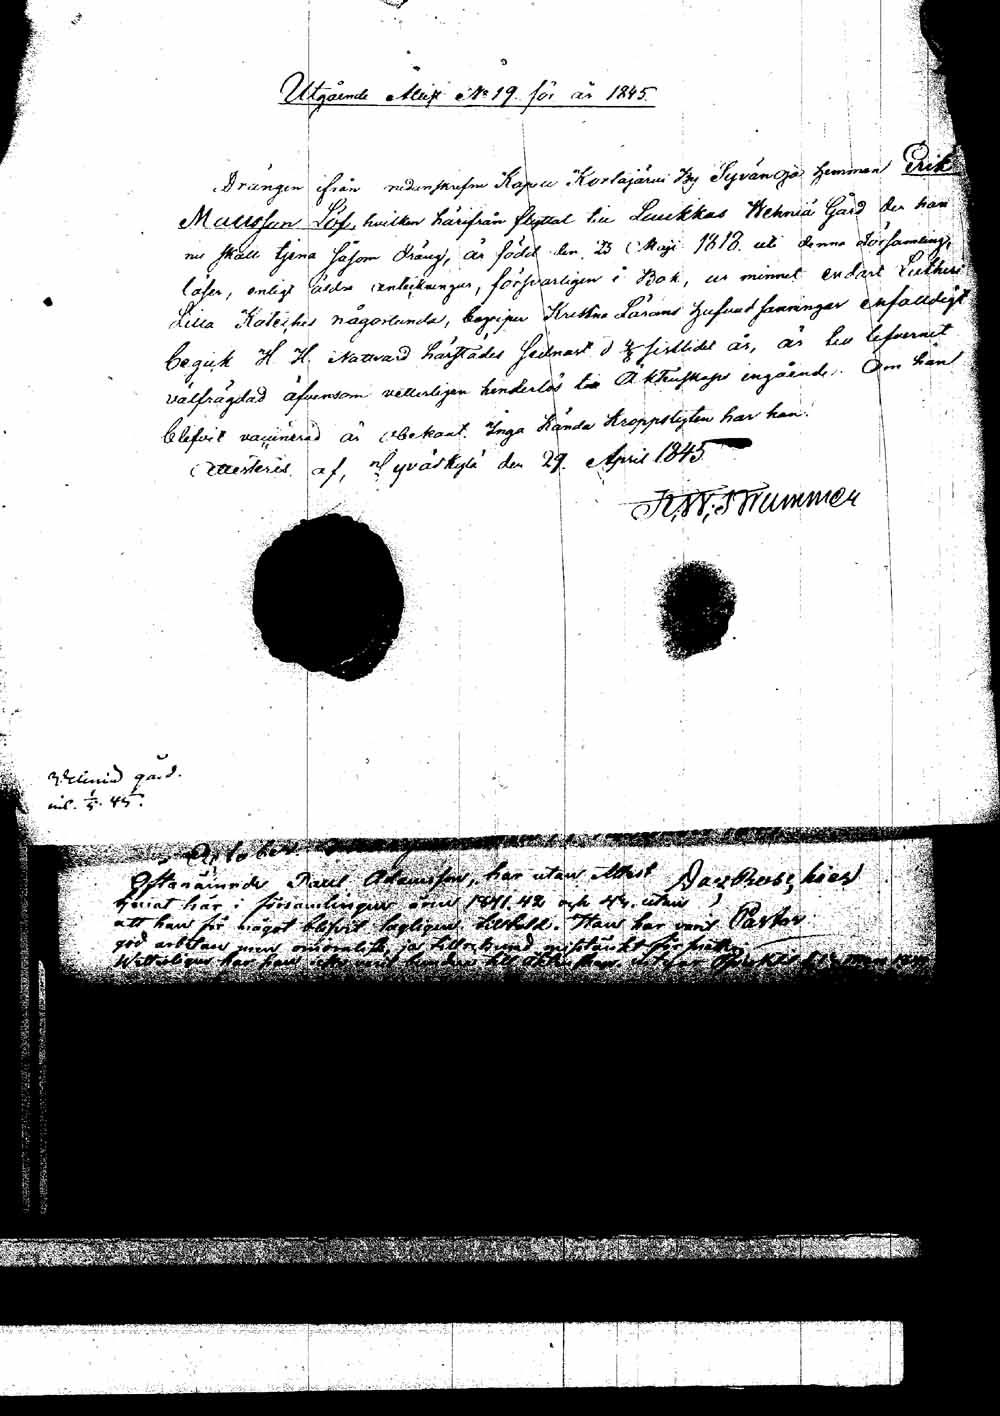 Utgående Attest No 19. för år 1845.
Drängen ifrån nedanskrefne Kapell Kortajärvi By Syvänoja hemman Erik
Mattsson Löf, hvilken härifrån flyttat till Laukkas Wehniä Gård der han
nu skall tjena såsom dräng, är född den 23 Maji 1818 uti denna Församling,
läser, enligt äldre anteckningar, försvarligen i Bok, ur minnet endast Lutheri
Lilla Kateches någorlunda, begriper Kristna Lärans hufvud sanningar enfaldigt
begick H. H. Nattvard härstädes sednast d sistlidet år, är till lefvernet
välfrägdad äfvensom vetterligen hinderlös till Äktenskaps ingående. Om han
blefvit vaccinerad är obekant. Inga kända kroppslyten har han.
Attesteras af, Jyväskylä den 29. April 1845
Wehniä gård.
1/5 45.
October.
Oftanämnde Paul Adamsson, har utan Attest
tjenat här i församlingen åren 1841. 42 och 43. utan
att han för något blefvit lagligen tilltald. Han har varit Pastor
god arbetare men
Wetterligen har han icke